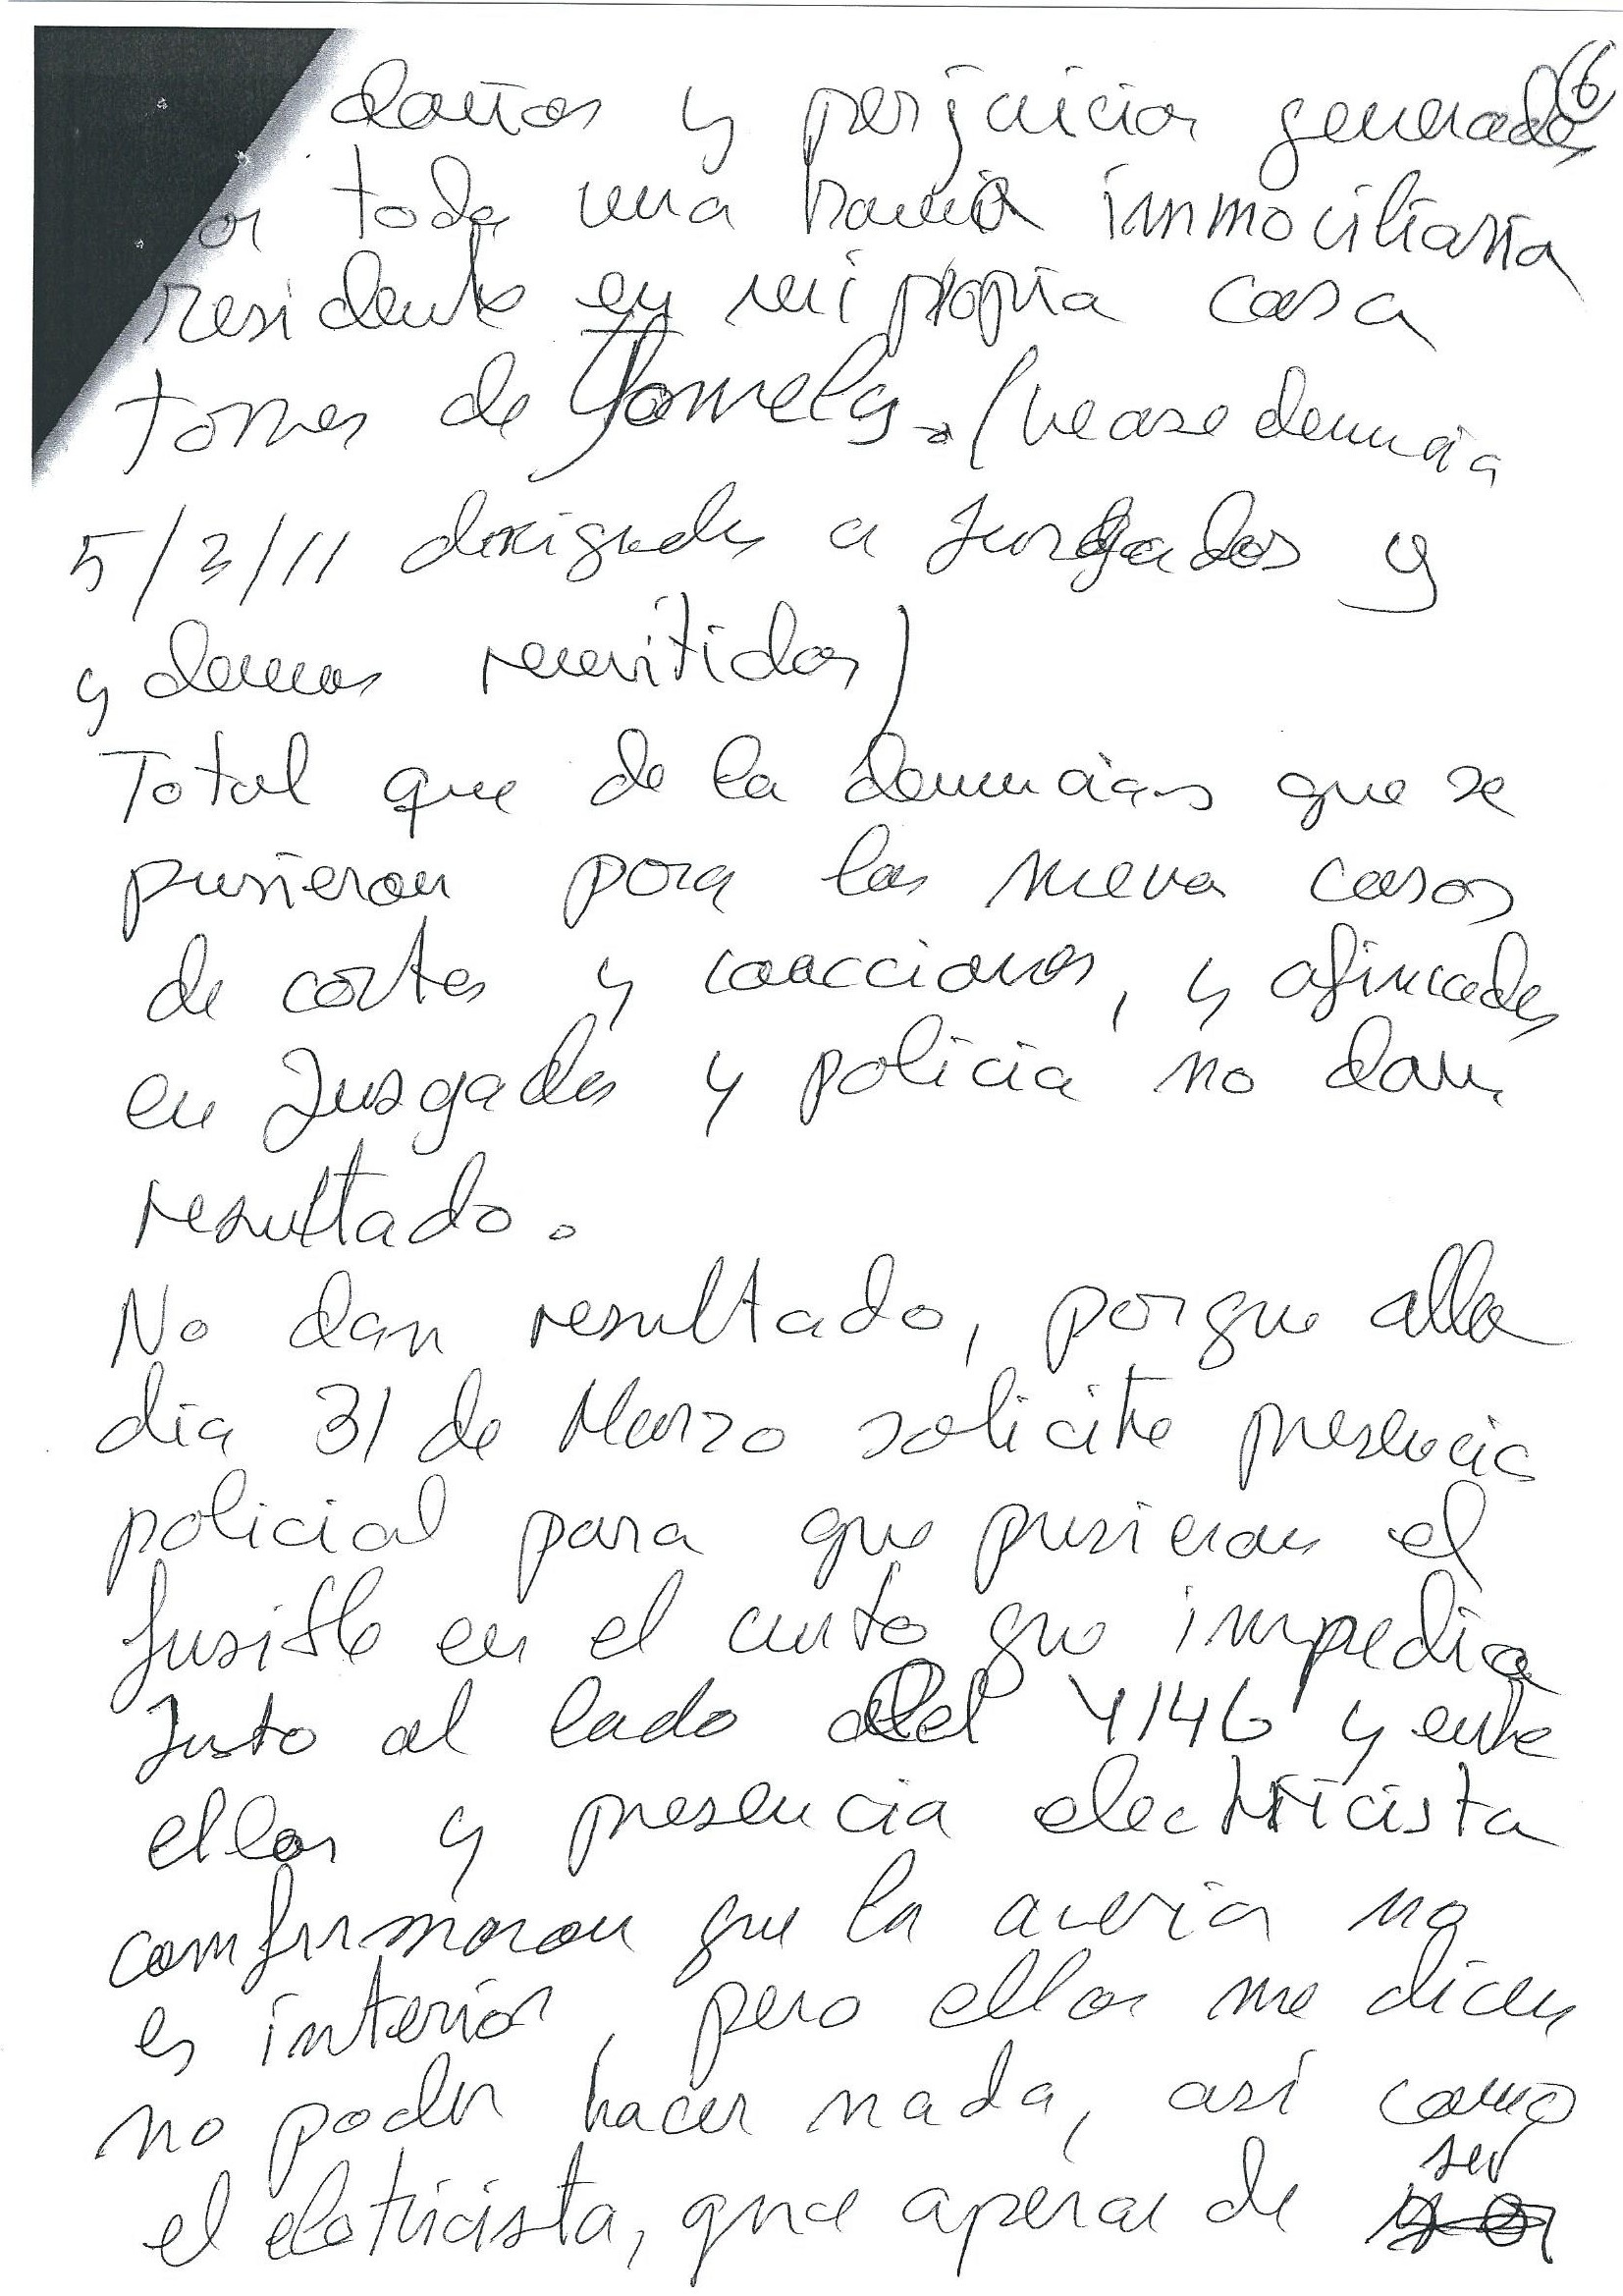 6
daños y perjuicios generados
or toda una immociliaria
residente en mi propia casa
torres de (vease denuncia
5/3/11 dirigida a Juzgados y
y demas remitidos)
Total que de la denuncias que se
pusieron pora las nueva casos
de cortes y coacciones, y afincadas
en Juzgados y policia no dan
resultado.
No dan resultado, porque alla
dia 31 de Marzo solicite presencia
policial para que pusieran el
fusible en el cuto que impedia
Justo al lado del 4146 y entre
ellos y presencia electricista
comfirmaron que la averia no
es interior, pero ellos me dicen
no poder hacer nada, asi como
ser
el eletricista, que apesar de